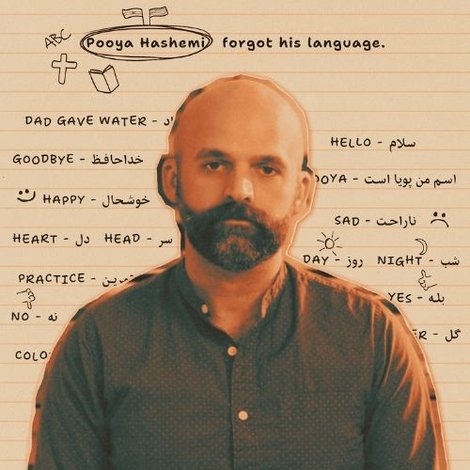 ABC
Pooya Hashemi forgot his language.
DAD GAVE WATER -
HELLO - سلام
GOODBYE - خداحافظ
اسم من پویا است
HAPPY - خوشحال
SAD - ناراحت
HEART - دل HEAD - سر
DAY - روز NIGHT - شب
PRACTICE - تمرین
YES - بله
NO - نه
گل